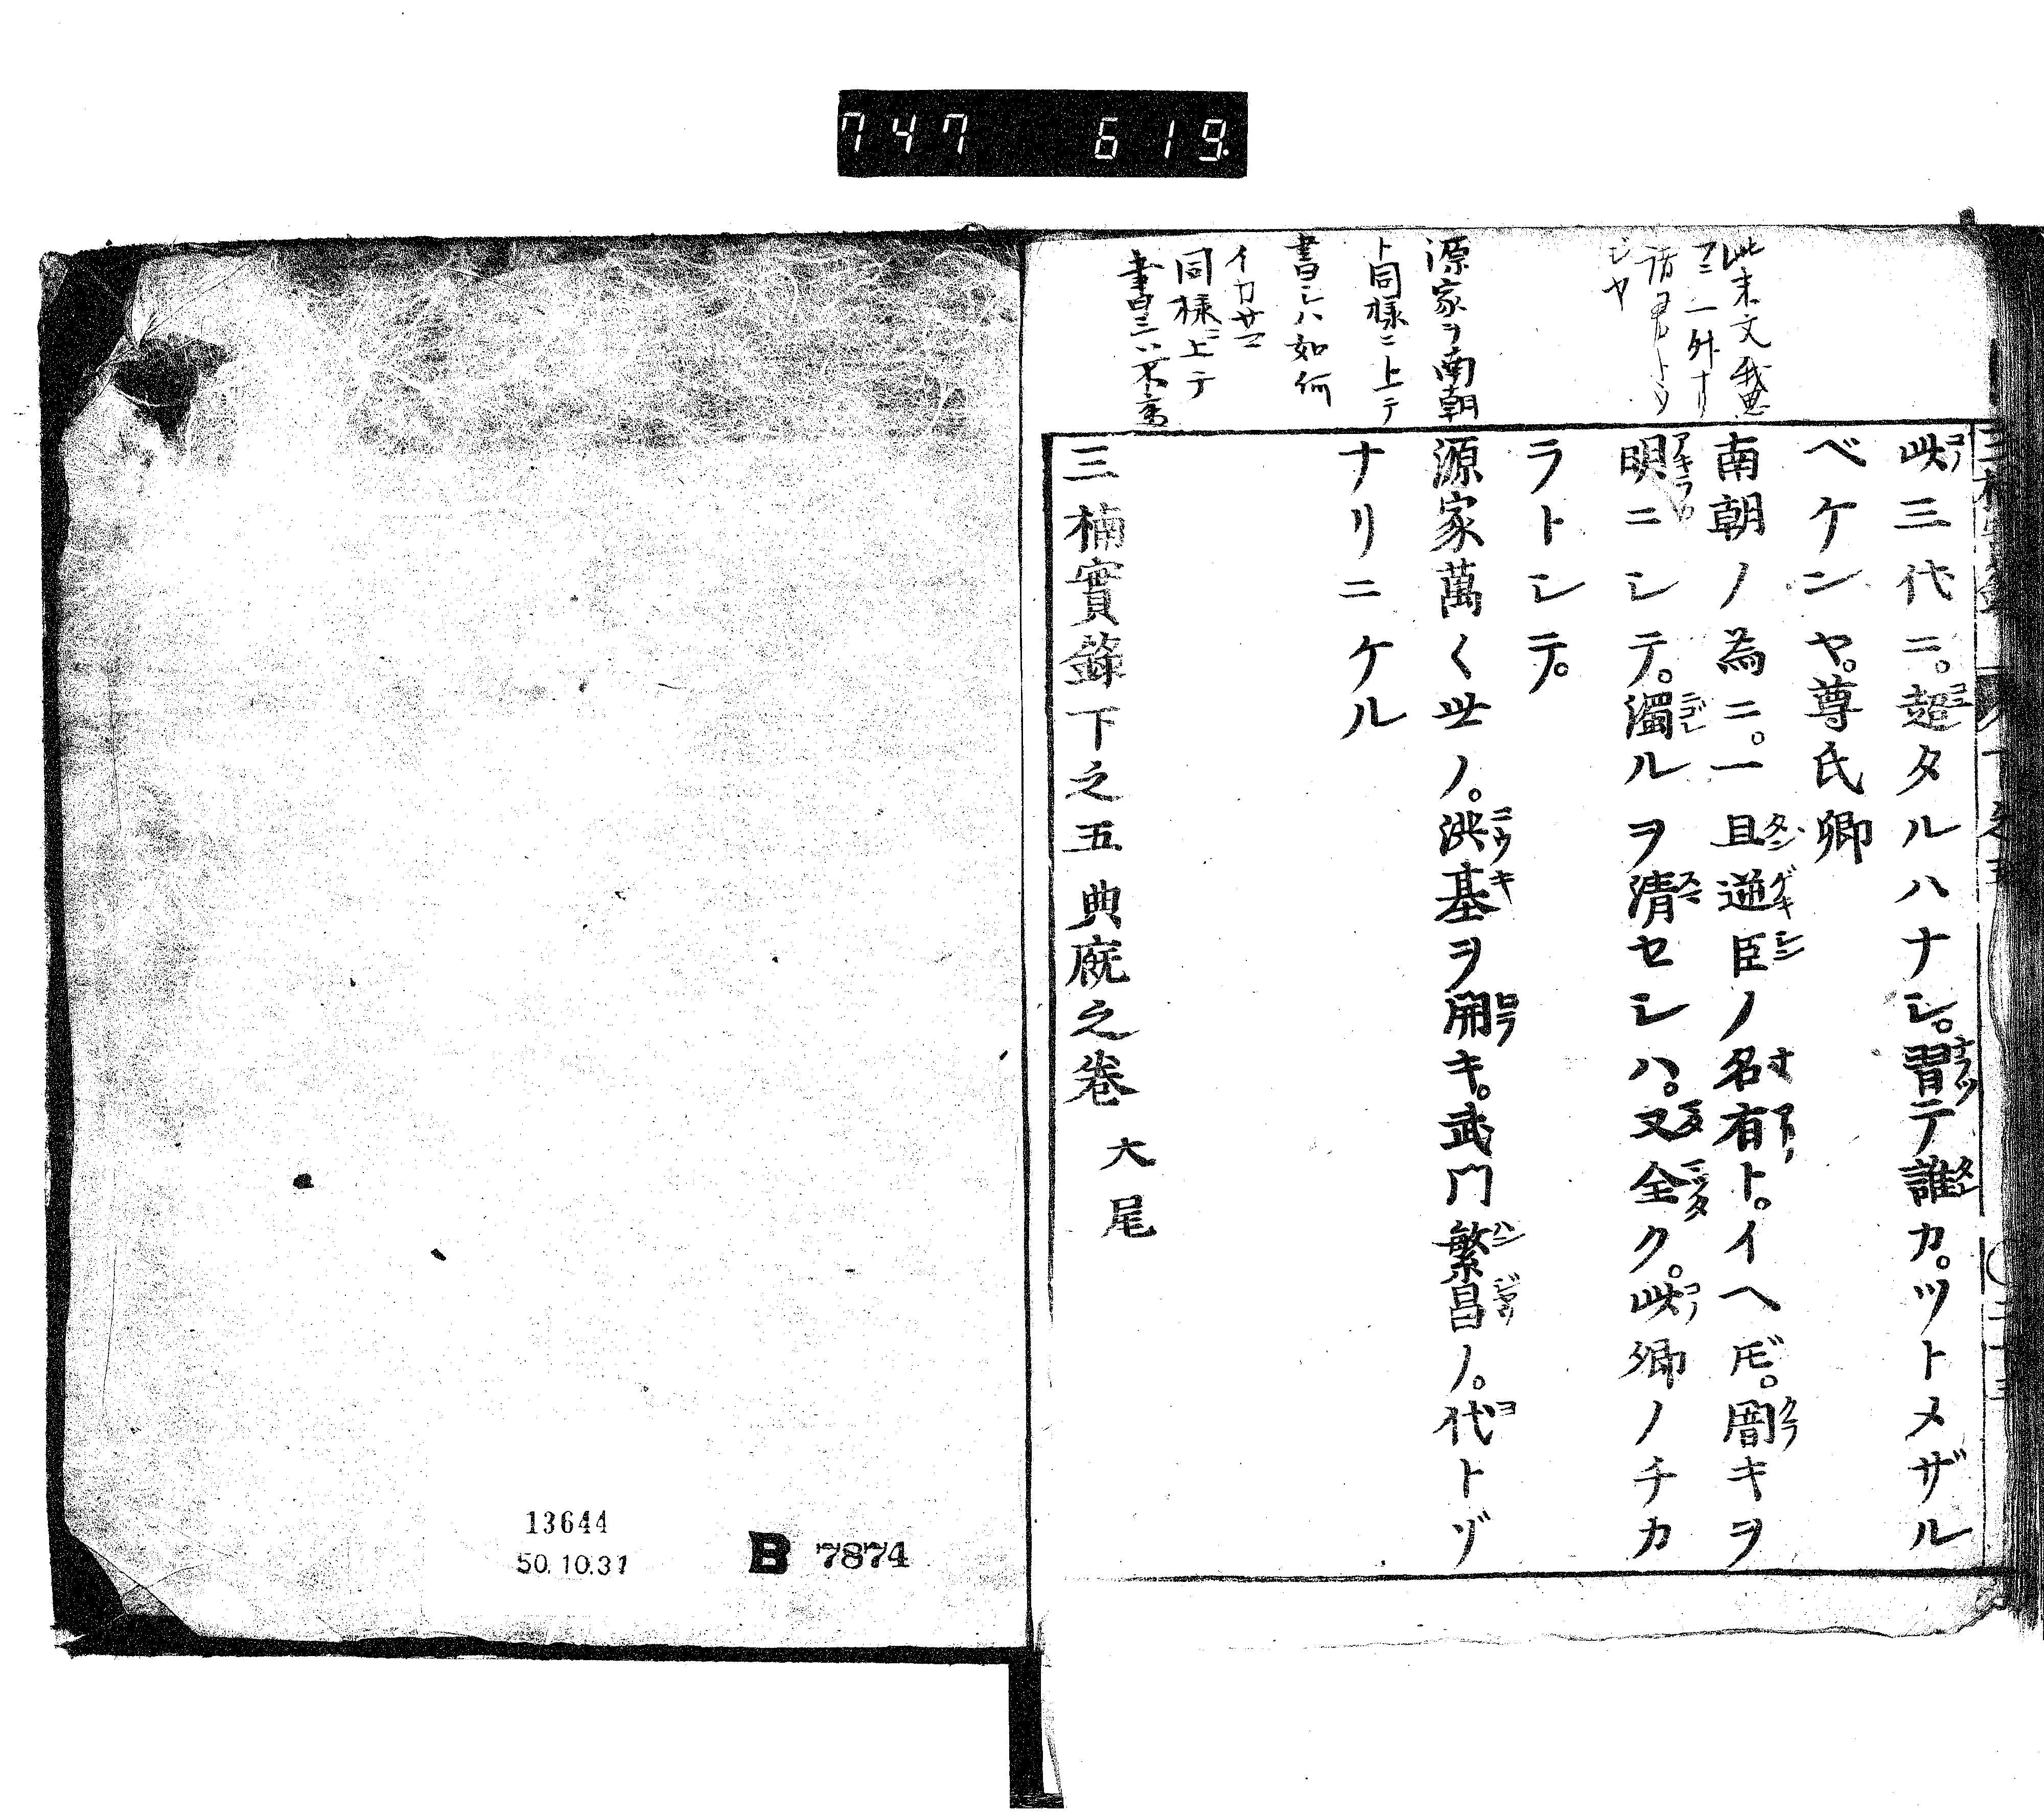 747 619.
此三代ニ。超タルハナシ。習テ誰カ。ツトメザル
ベケンヤ。尊氏卿
南朝ノ為ニ。一旦逆臣ノ名有ト。イヘ𪜈。闇キヲ
明ニシテ。濁ルヲ清セシハ。又全ク。此卿ノチカ
ラトシテ。
源家萬〱世ノ。洪基ヲ開キ。武門繁昌ノ。代トゾ
ナリニケル
三楠實錄下之五 典廐之卷 大尾
此末文
ジヤ
源家ヲ南朝
ト同様ニ上テ
書シハ如何
イカサマ
同様ニ上テ
13644
50.10.31
B 7874